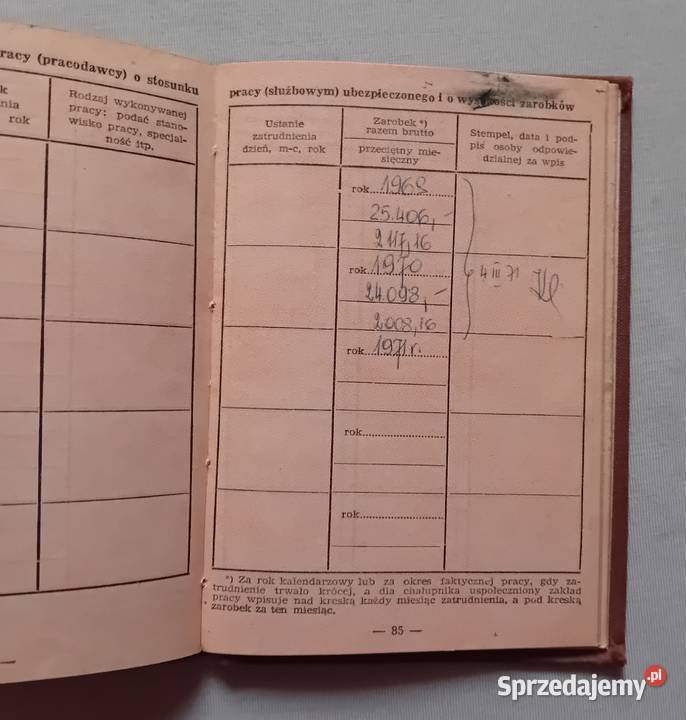 racy (pracodawcy) o stosunku
k
nia
rok
Rodzaj wykonywanej
pracy: podać stano-
wisko pracy, specjal-
ność itp.
pracy (służbowym) ubezpieczonego i o wysokości zarobków
Ustanie
zatrudnienia
dzień, m-c, rok
Zarobek *)
razem brutto
przeciętny mie-
sięczny
Stempel, data i pod-
pis osoby odpowie-
dzialnej za wpis
rok 1969
25.406,-
2117,16
rok 1970
24.098,-
2008,16
4 III 71
rok 1971 r.
rok
rok
*) Za rok kalendarzowy lub za okres faktycznej pracy, gdy za-
trudnienie trwało krócej, a dla chałupnika uspołeczniony zakład
pracy wpisuje nad kreską każdy miesiąc zatrudnienia, a pod kreską
zarobek za ten miesiąc.
— 85 —
Sprzedajemy.pl